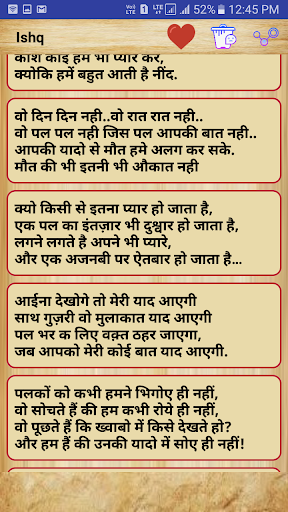 52% 12:45 PM
Ishq
काश कोई हम भी प्यार कर,
क्योकि हमें बहुत आती है नींद.
वो दिन दिन नही..वो रात रात नही..
वो पल पल नही जिस पल आपकी बात नही..
आपकी यादो से मौत हमे अलग कर सके.
मौत की भी इतनी भी औकात नही
क्यो किसी से इतना प्यार हो जाता है,
एक पल का इंतज़ार भी दुश्वार हो जाता है,
लगने लगते है अपने भी प्यारे,
और एक अजनबी पर ऐतबार हो जाता है...
आईना देखोगे तो मेरी याद आएगी
साथ गुज़री वो मुलाकात याद आएगी
पल भर क लिए वक़्त ठहर जाएगा,
जब आपको मेरी कोई बात याद आएगी.
पलकों को कभी हमने भिगोए ही नहीं,
वो सोचते हैं की हम कभी रोये ही नहीं,
वो पूछते हैं कि ख्वाबो में किसे देखते हो?
और हम हैं की उनकी यादो में सोए ही नहीं!